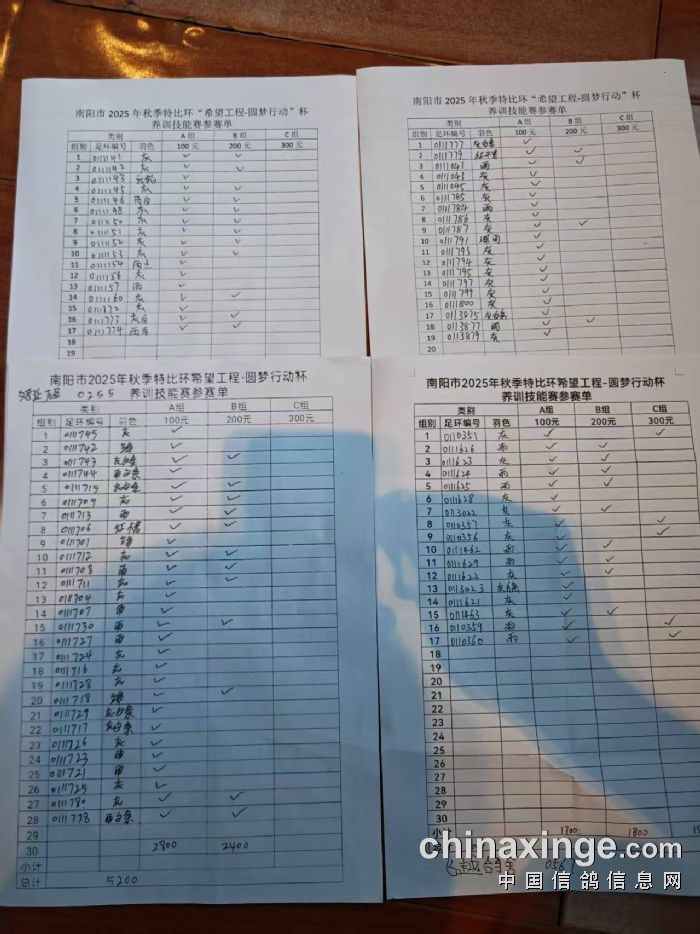 南阳市 2025 年秋季特比环“希望工程-圆梦行动”杯
养训技能赛参赛单
类别 A 组 B 组 C 组
组别 足环编号 羽色 100 元 200 元 300 元
1 0111141 灰 ✓ ✓
2 0111142 灰 ✓ ✓
3 0111143 ✓
4 0111145 灰 ✓ ✓
5 0111146 ✓ ✓
6 0111148 灰 ✓ ✓
7 0111150 灰 ✓ ✓
8 0111151 灰 ✓ ✓
9 0111152 灰 ✓ ✓
10 0111153 灰 ✓ ✓
11 0111154 ✓
12 0111156 灰 ✓
13 0111157 雨 ✓
14 0111160 灰 ✓ ✓
15 灰 ✓
16 0111773 ✓ ✓
17 0111774 ✓ ✓
18
19
20
南阳市 2025 年秋季特比环“希望工程-圆梦行动”杯
养训技能赛参赛单
类别 A 组 B 组 C 组
组别 足环编号 羽色 100 元 200 元 300 元
1 0111777 灰白条 ✓
2 0111779 ✓ ✓
3 0111041 雨 ✓ ✓
4 0111043 灰 ✓
5 0111045 灰 ✓
6 0111785 灰 ✓
7 0111784 雨 ✓
8 0111786 灰 ✓ ✓
9 0111787 灰 ✓
10 0111791 ✓
11 0111793 灰 ✓
12 0111794 灰 ✓
13 0111795 灰 ✓
14 0111797 灰 ✓
15 0111799 灰 ✓
16 0111800 灰 ✓
17 0113875 灰白条 ✓ ✓
18 0113877 雨 ✓ ✓
19 0113879 灰 ✓
20
南阳市2025年秋季特比环希望工程-圆梦行动杯
0255 养训技能赛参赛单
类别 A组 B组 C组
组别 足环编号 羽色 100元 200元 300元
1 0111745 灰 ✓
2 0111742 ✓
3 0111743 灰白条 ✓ ✓
4 0111744 雨白条 ✓ ✓
5 0111715 灰白条 ✓ ✓
6 0111709 灰 ✓ ✓
7 0111713 雨 ✓ ✓
8 0111706 ✓ ✓
9 0111701 ✓
10 0111712 灰 ✓ ✓
11 0111708 雨 ✓ ✓
12 0111711 灰 ✓ ✓
13 灰 ✓
14 0111707 雨 ✓
15 0111730 雨 ✓ ✓
16 0111727 雨 ✓
17 0111724 灰 ✓
18 0111716 灰 ✓
19 0111728 灰 ✓
20 0111718 ✓ ✓
21 0111729 灰白条 ✓
22 0111717 灰白条 ✓
23 0111726 灰 ✓
24 0111723 雨 ✓
25 0111721 雨 ✓
26 0111725 灰 ✓
27 0111780 灰 ✓ ✓
28 0111778 雨白条 ✓ ✓
29
30 2800 2400
小计
总计 5200
南阳市2025年秋季特比环希望工程-圆梦行动杯
养训技能赛参赛单
类别 A组 B组 C组
组别 足环编号 羽色 100元 200元 300元
1 0110351 灰 ✓ ✓
2 0111626 雨 ✓ ✓
3 0111623 雨 ✓ ✓
4 0111624 雨 ✓ ✓
5 0111625 雨 ✓ ✓
6 0111628 灰 ✓
7 0113022 灰 ✓ ✓
8 0110357 灰 ✓ ✓
9 0110356 灰 ✓ ✓
10 0111462 雨 ✓ ✓
11 0111629 雨 ✓ ✓
12 0111622 灰 ✓ ✓
13 0113023 灰白条 ✓
14 0111621 灰 ✓
15 0111463 灰 ✓ ✓
16 0110359 雨 ✓ ✓
17 0110360 雨 ✓ ✓
18
19
20
21
22
23
24
25
26
27
28
29
30
小计 1700 1800
chinaxinge.com
中国信鸽信息网